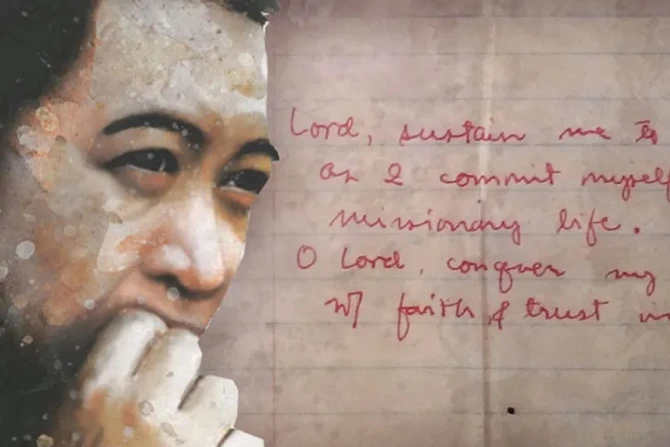 Lord, sustain me to
as I commit myself
missionary life.
O Lord, conquer my
w/ faith & trust